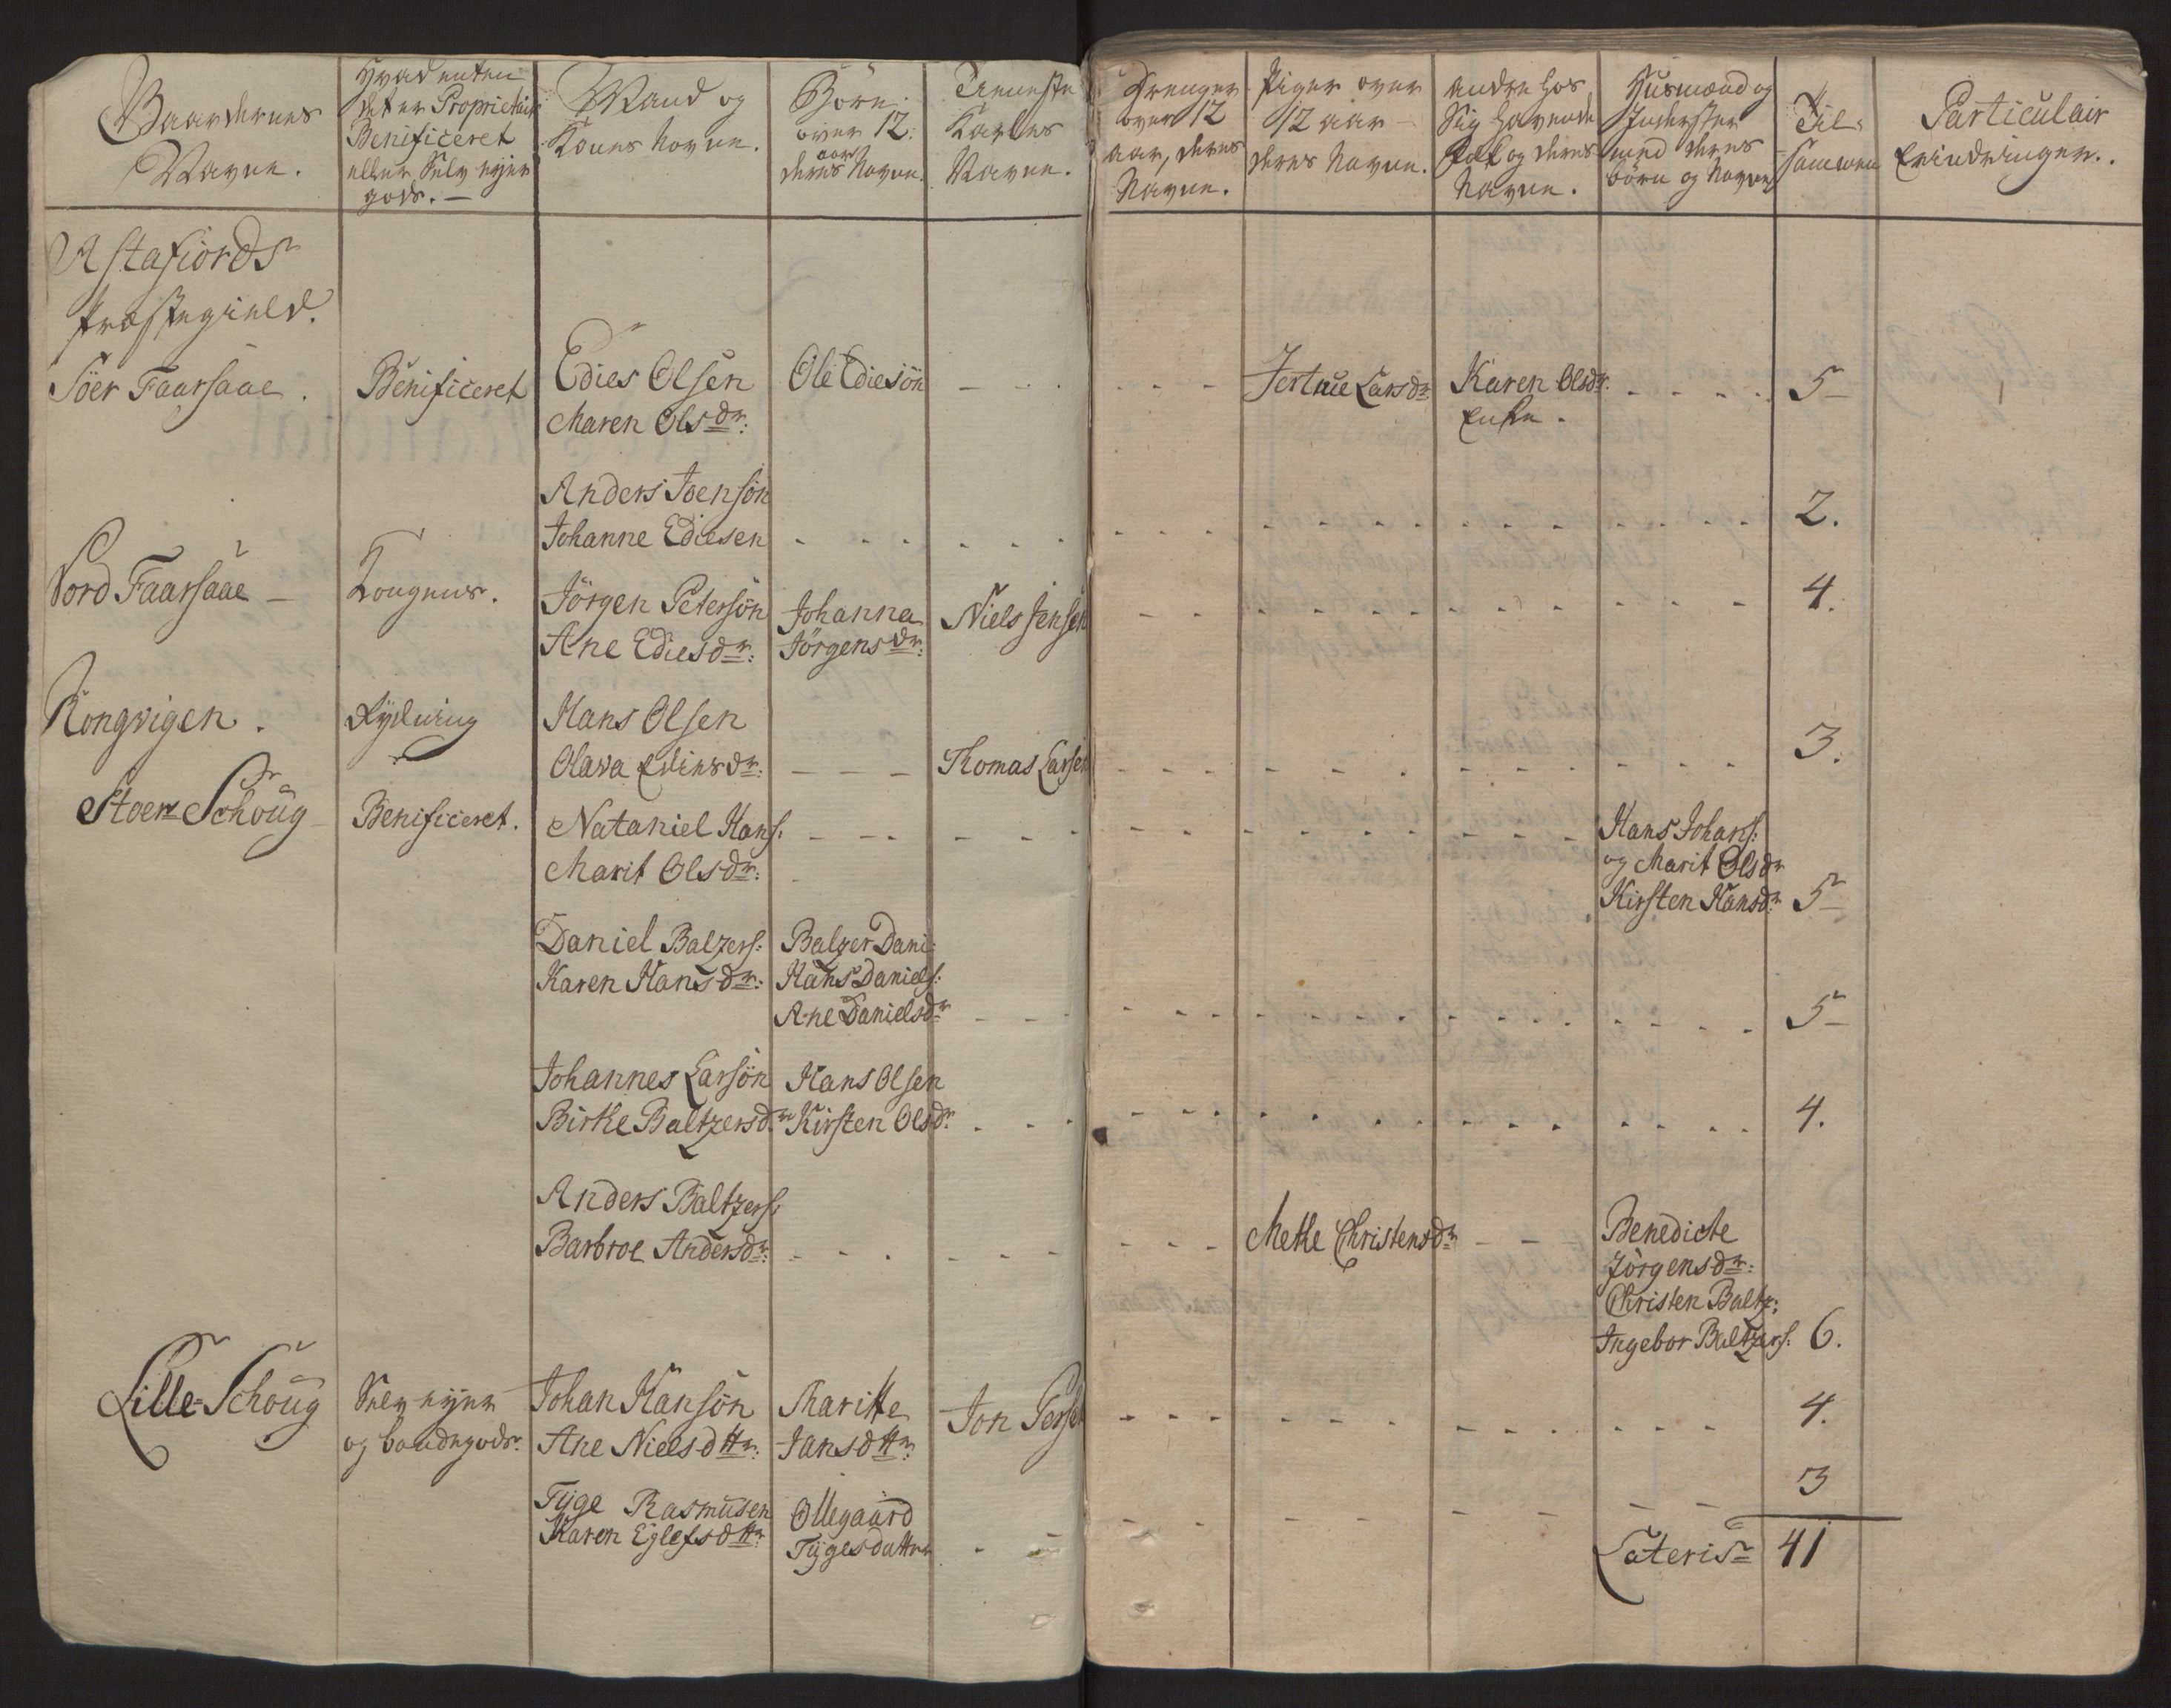 Gaardernes
Navne.
Hvad enten
det er Proprietair
Benificeret
eller Selv eyer
gods. —
Mand og
Kones Navne.
Börn
over 12:
aar
deres Navne.
Tieneste
Karles
Navne.
Drenger
over 12
aar, deres
Navne.
Piger over
12 aar —
deres Navne.
Andre hos
Sig havende
folk og deres
Navne.
Husmænd og
Inderster
med deres
börn og Navne
Til-
sammen
Particulair
Erindringer.
Astafiords
Præstegield.
Söer Faarsaae.
Benificeret
Edies Olsen
Maren Olsdr:
Ole Ediesön
Jertrue Larsdr
Karen Olsdr.
Enke.
5
Anders Joensön
Johanne Ediesen
2.
Nord Faarsaae —
Kongens.
Jörgen Petersön
Ane Ediesdr:
Johanna
Jörgensdr:
Niels Jensen
4.
Rongvigen.
Hans Olsen
Olava Ediesdr:
Thomas Larsen
3.
Stoer Schoug
Benificeret.
Nataniel Hans:
Marit Olsdr:
Hans Johans:
og Marit Olsdr
Kirsten Hansdr
5
Daniel Balzers:
Karen Hansdr:
Balzer Dani:
Hans Daniels:
Ane Danielsdr
5
Johannes Larsön
Birthe Baltzersdr
Hans Olsen
Kirsten Olsdr.
4.
Anders Baltzers:
Barbroe Andersdr:
Methe Christensdr
Benedicte
Jörgensdr:
Christen Baltz:
Ingebor Baltzers:
6.
Lille-Schoug
Selv eyer
og bondegods.
Johan Hansön
Ane Nielsdttr:
Maritte
Jansdttr:
Jon Persen
4.
Tÿge Rasmusen
Karen Eglefsdttr
Ollegaard
Tÿgesdatter
3
Lateris
41